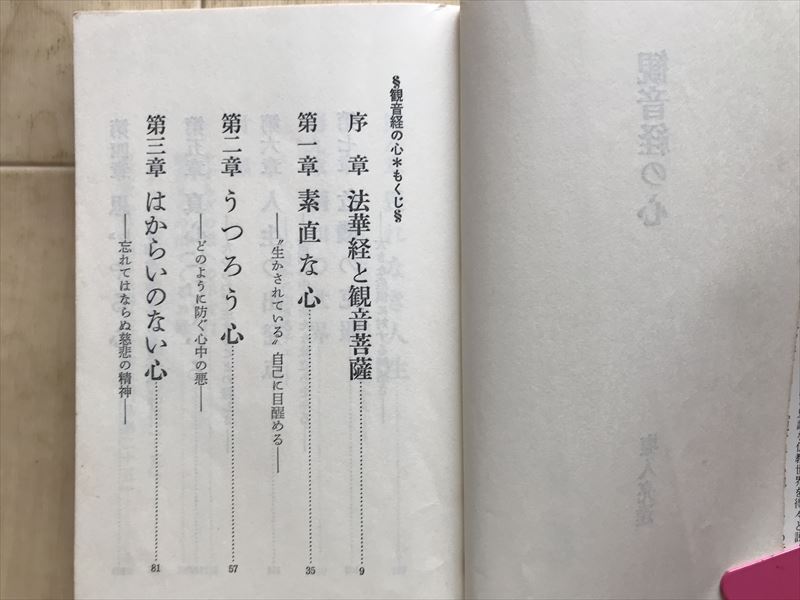 §観音経の心＊もくじ§
序章 法華経と観音菩薩……9
第一章 素直な心……35
――〝生かされている〟自己に目醒める――
第二章 うつろう心……57
――どのように防ぐ心中の悪――
第三章 はからいのない心……81
――忘れてはならぬ慈悲の精神――